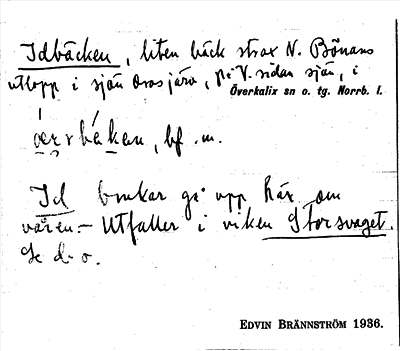 Idbäcken, liten bäck strax N. Bönans
utlopp i sjön Orasjärv, på V. sidan sjön, i
Överkalix sn o. tg. Norrb. l.
bf. m.
Id brukar gå upp här om
våren. – Utfaller i viken Storsvaget.
Se d. o.
EDVIN BRÄNNSTRÖM 1936.